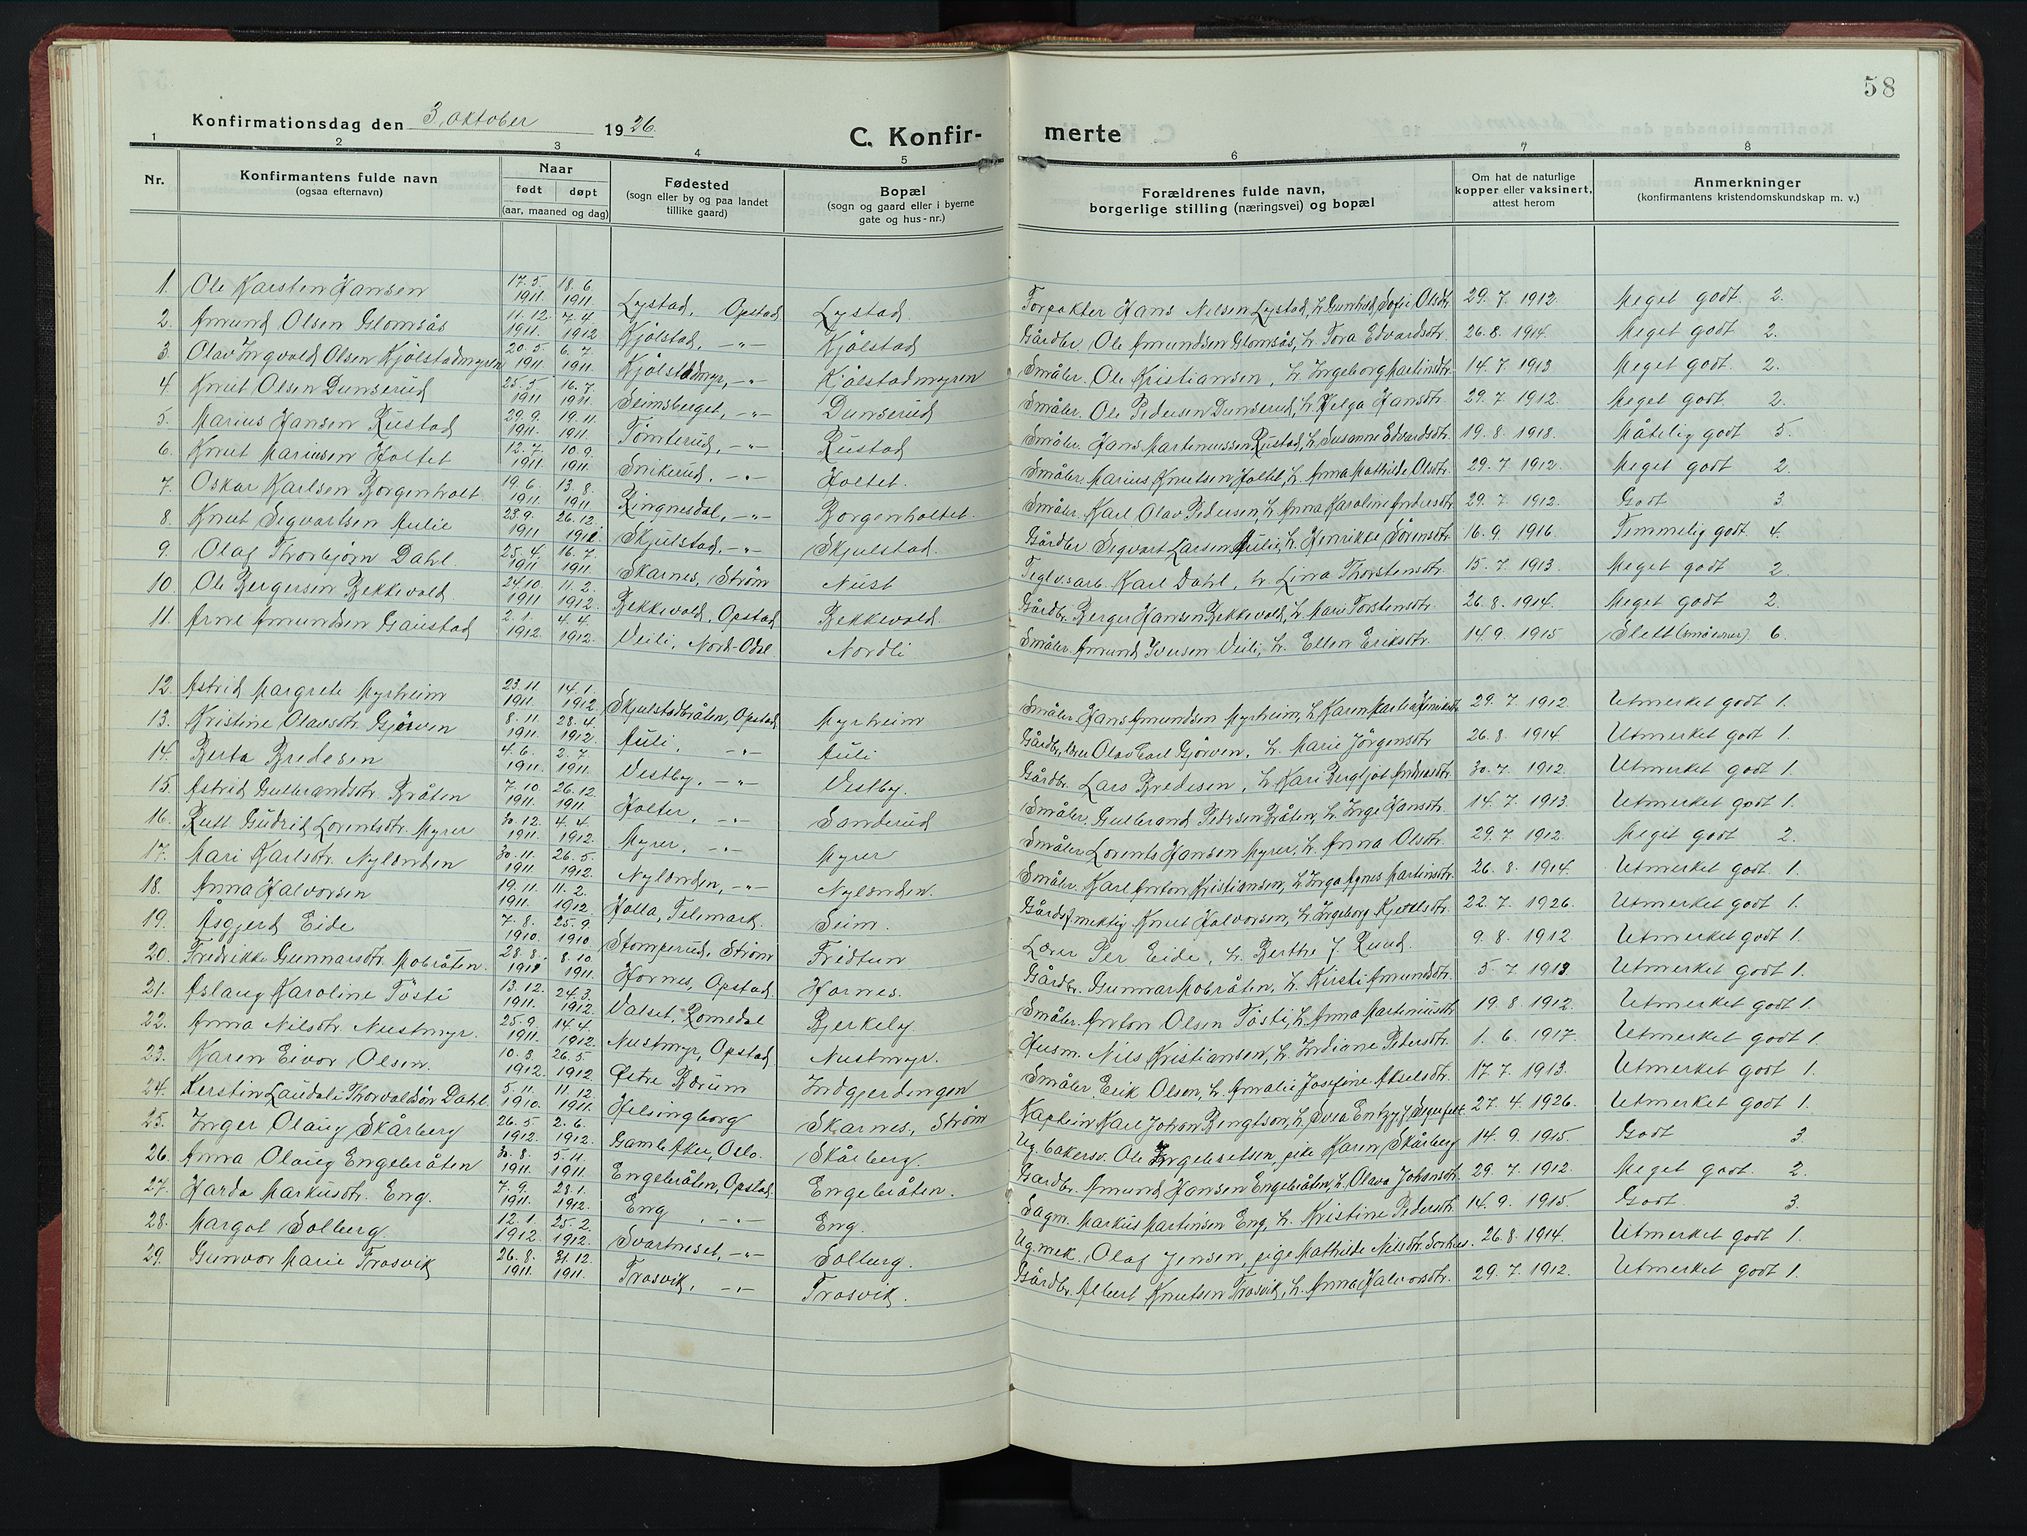 58
Konfirmationsdag den 3. oktober 1926.
C. Konfirmerte
1 2 3 4 5 6 7 8
Nr. Konfirmantens fulde navn (ogsaa efternavn)
Naar født døpt (aar, maaned og dag)
Fødested (sogn eller by og paa landet tillike gaard)
Bopæl (sogn og gaard eller i byerne gate og hus-nr.)
Forældrenes fulde navn, borgerlige stilling (næringsvei) og bopæl
Om hat de naturlige kopper eller vaksinert, attest herom
Anmerkninger (konfirmantens kristendomskundskap m. v.)
1. Ole Karsten Hansen 17.5. 1911. 18.6. 1911. Lystad, Opstad Lystad. Forpakter Hans Nilsen Lystad, h. Gunhild Sofie Olsdtr. 29. 7. 1912. Meget godt. 2.
2. Amund Olsen Glomsås 11.12. 1911. 7.4. 1912 Kjölstad, -"- Kjölstad Gårdbr. Ole Amundsen Glomsås, h. Tora Edvardsdtr. 26.8. 1914. Meget godt 2.
3. Olav Ingvald Olsen Kjölstadmyren 20.5. 1911 6.7. 1911. Kjölstadmyr, -"- Kjölstadmyren Småbr. Ole Kristiansen, h. Ingeborg Martinsdtr. 14.7. 1913 Meget godt. 2.
4. Knut Olsen Dunserud 25.5. 1911 16.7. 1911. Seimsberget, -"- Dunserud Småbr. Ole Pedersen Dunserud, h. Helga Hansdtr. 29.7. 1912. Meget godt. 2.
5. Marius Hansen Rustad 29.9. 1911. 19.11. 1911. Tömterud, -"- Rustad Småbr. Hans Martinussen Rustad, h. Susanne Edvardsdtr. 19.8. 1918. Måtelig godt 5.
6. Knut Mariusen Holtet 12.7. 1911 10.9. 1911. Snikerud, -"- Holtet. Småbr. Marius Knutsen Holtet, h. Anna Mathilde Olsdtr. 29.7 1912. Meget godt 2.
7. Oskar Karlsen Borgenholt 19.6. 1911. 13.8. 1911. Ringnesdal, -"- Borgenholtet. Småbr. Karl Olav Pedersen, h. Anna Karoline Andersdtr. 29.7. 1912. Godt 3
8. Knut Segvartsen Aulie 23.9. 1911 26.12. 1911. Skjulstad, -"- Skjulstad. Gårdbr. Segvart Larsen Aulie, h. Henrikke Sörensdtr. 16.9. 1916. Temmelig godt 4.
9. Olaf Thorbjörn Dahl. 25.4. 1911 16.7. 1911. Skarnes, Ström Nust Teglvsarb. Karl Dahl, h. Lina Thorstensdtr. 15.7. 1913. Meget godt 2.
10. Ole Bergersen Bekkevold. 24.10. 1911 11.2. 1912. Bekkevold, Opstad Bekkevold. Gårdbr. Berger Hansen Bekkevold, h. Mari Torstensdtr. 26.8. 1914. Meget godt 2.
11. Arne Amundsen Gaustad 2.1. 1912. 4.4. 1912. Veili, Nord-Odal. Nordli Småbr. Amund Iversen Veili, h. Ellen Eriksdtr. 14.9. 1915 Slett 6.
12. Astrid Margrete Myrheim 23.11. 1911. 14.1. 1912. Skjulstadbråten, Opstad Myrheim Småbr. Hans Amundsen Myrheim, h. Karen 29.7. 1912. Utmerket godt 1.
13. Kristine Olavsdtr. Gjörven 8.11. 1911. 28.4. 1912. Auli, -"- Auli Olav Gjörven, h. Marie Jörgensdtr. 26.8. 1914 Utmerket godt 1.
14. Berta Bredesen 4.6. 1911. 2.7. 1911. Vestby, -"- Vestby. Gårdbr. Lars Bredesen, h. Kari Bergljot Andreasdtr. 30.7. 1912. Utmerket godt 1.
15. Astrid Gulbrandsdtr. Bråten 7.10 1911. 26.12. 1911. Holter, -"- Sanderud Småbr. Gulbrand Pedersen Bråten, h. Inge Hansdtr. 14.7. 1913. Utmerket godt 1.
16. Rutt Gudrid Lorentsdtr. Myrer 30.12. 1911. 4.4. 1912. Myrer, -"- Myrer Småbr. Lorents Hansen Myrer, h. Anna Olsdtr. 29.7. 1912. Meget godt 2.
17. Mari Karlsdtr. Nylænden 30.11. 1911. 26.5. 1912. Nylænden, -"- Nylænden. Småbr. Karl Anton Kristiansen, h. Inga Agnes Martinsdtr. 26.8. 1914. Utmerket godt 1.
18. Anna Halvorsen 19.11. 1911. 11.2. 1912. Holla, Telemark. Seim. Gårdsfmektig Knut Halvorsen, h. Ingeborg Kjetilsdtr. 22.7. 1926. Utmerket godt 1.
19. Åsgjerd Eide 7.8. 1910. 25.9. 1910. Stomperud, Ström Fridtun Lærer Per Eide, h. Berthe f. Ruud. 9.8. 1912. Utmerket godt 1.
20. Fredrikke Gunnarsdtr. Mobråten. 28.8. 1911 8.10. 1911. Hornes, Opstad. Hornes. Gårdbr. Gunnar Mobråten, h. Kirsti Amundsdtr. 5.7. 1913 Utmerket godt 1.
21. Aslaug Karoline Tösti 13.12. 1911. 24.3. 1912. Valset, Romedal Bjerkely Småbr. Anton Olsen Tösti, h. Anna Martiniusdtr. 19.8. 1912. Utmerket godt 1.
22. Anna Nilsdtr. Nustmyr. 25.9. 1911. 14.4. 1912. Nustmyr, Opstad. Nustmyr. Husm. Nils Kristiansen, h. Indiane Pedersdtr. 1.6. 1917. Utmerket godt 1.
23. Karen Eivor Olsen. 10.3. 1912. 26.5 1912. Østre Bærum Indgjerdingen Småbr. Erik Olsen, h. Amalie Josefine Akselsdtr. 17.7. 1913. Utmerket godt 1.
24. Kerstin Thorvaldsön Dahl. 5.11. 1910. 11.12. 1911. Helsingborg Skarnes, Ström Kaptein Karl Johan Bengtson, h. Svea 27.4. 1926. Utmerket godt 1.
25. Inger Olaug Skårberg 26.5. 1912. 2.6. 1912. Gamle Aker, Oslo. Skårberg. Ug. bakersv. Ole Ingebretsen, pike Karen Skårberg 14.9. 1915. Godt 3.
26. Anna Olaug Engebråten 30.8. 1911. 5.11. 1911. Engebråten, Opstad Engebråten. Gårdbr. Amund Hansen Engebråten, h. Olava Johansdtr. 29.7. 1912. Meget godt. 2.
27. Harda Markusdtr. Eng. 7.9. 1911. 28.1. 1912. Eng, -"- Eng. Sagm. Markus Martinsen Eng, h. Kristine Pedersdtr. 14.9. 1915. Godt. 3.
28. Margot Solberg. 12.1. 1912. 25.2. 1912. Svartneset, -"- Solberg. Ug. mek. Olaf Jensen, pige Mathilde Nilsdtr. 26.8. 1914. Utmerket godt 1.
29. Gunvor Marie Trosvik 26.8. 1911. 31.12. 1911. Trosvik, -"- Trosvik. Gårdbr. Albert Knutsen Trosvik, h. Anna Halvorsdtr. 29.7. 1912. Utmerket godt 1.